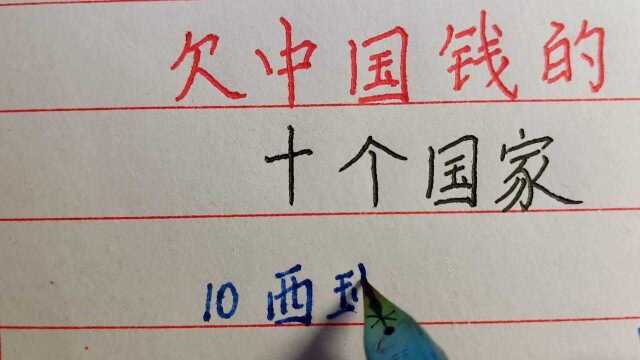 欠中国钱的
十个国家
10 西